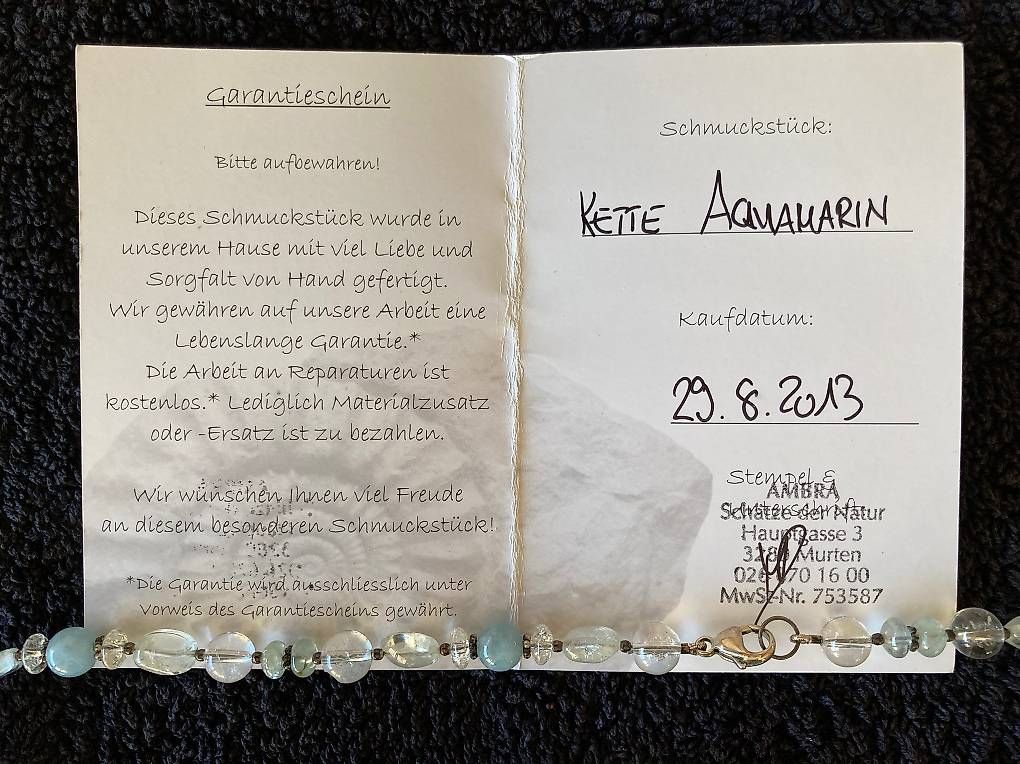 Garantieschein
Bitte aufbewahren!
Dieses Schmuckstück wurde in
unserem Hause mit viel Liebe und
Sorgfalt von Hand gefertigt.
Wir gewähren auf unsere Arbeit eine
Lebenslange Garantie.*
Die Arbeit an Reparaturen ist
kostenlos.* Lediglich Materialzusatz
oder -Ersatz ist zu bezahlen.
Wir wünschen Ihnen viel Freude
an diesem besonderen Schmuckstück!
*Die Garantie wird ausschliesslich unter
Vorweis des Garantiescheins gewährt.
Schmuckstück:
KETTE AQUAMARIN
Kaufdatum:
29.8.2013
Stempel &
Unterschrift:
AMBRA
Schätze der Natur
Hauptgasse 3
Murten
16 00
MwSt-Nr. 753587